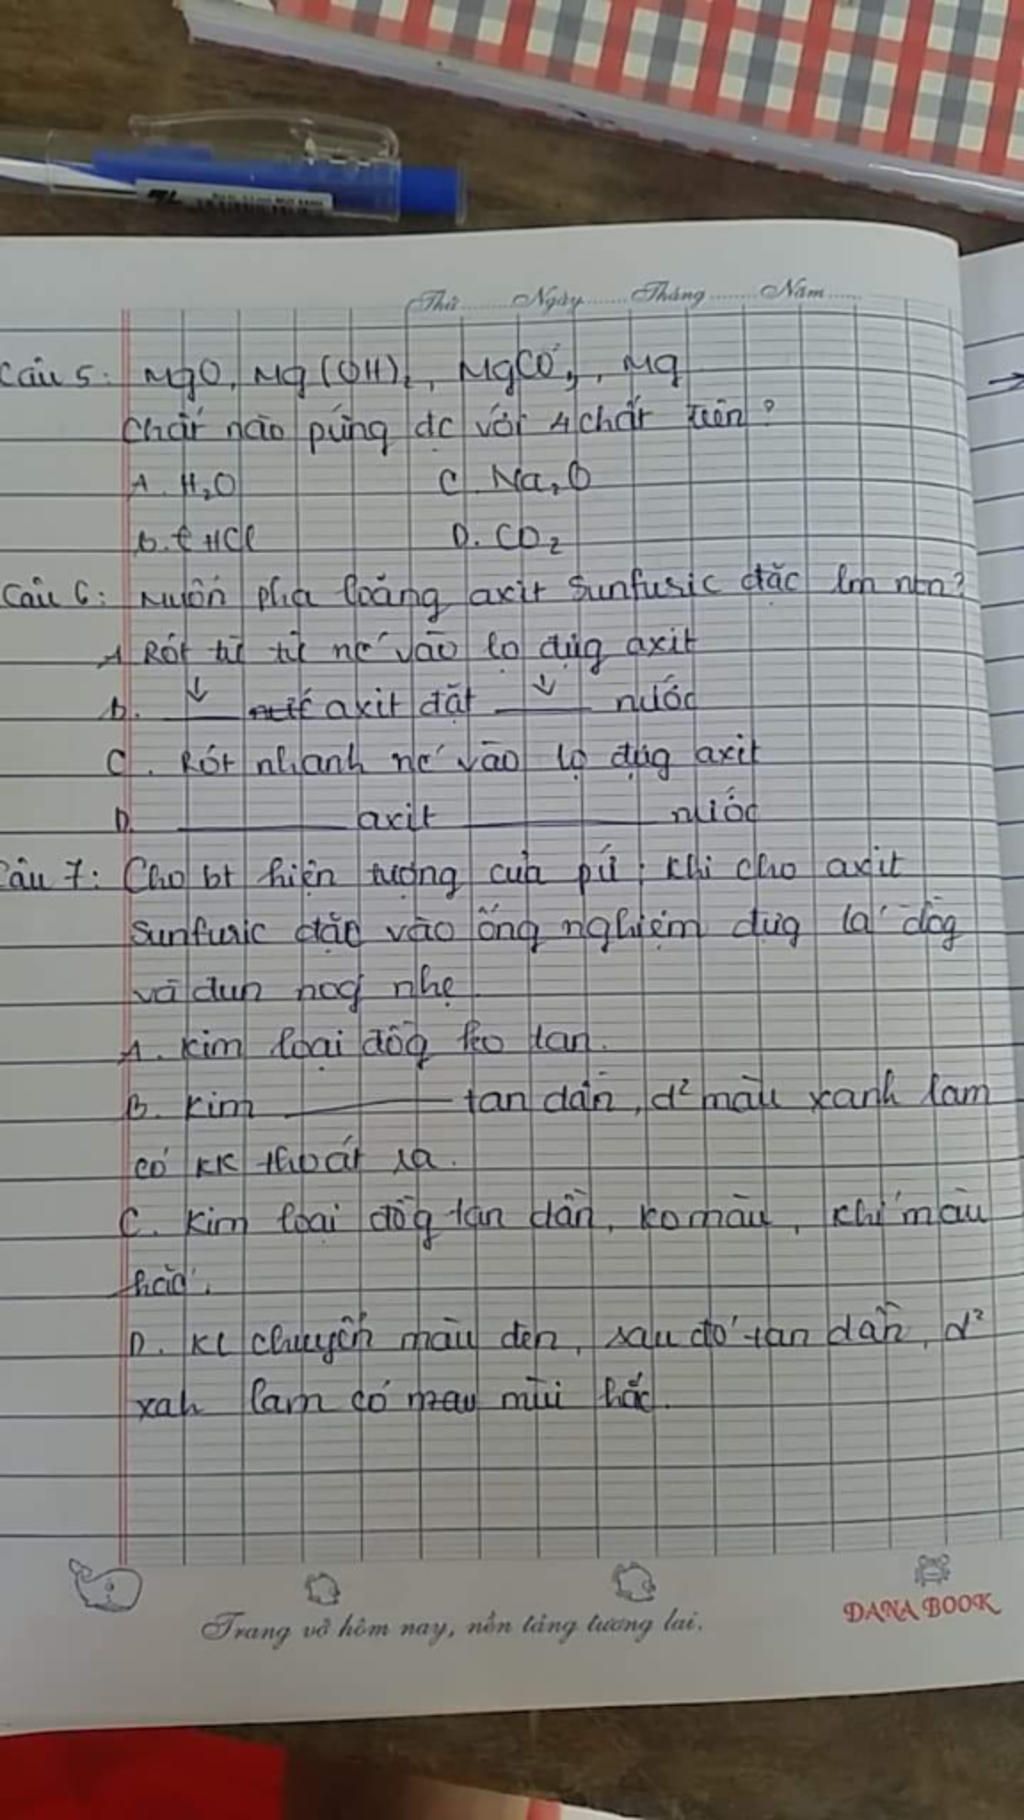 Thứ........Ngày........Tháng........Năm......
Câu 5: MgO, Mg(OH)₂, MgCO₃, Mg
Chất nào pứng đc với 4 chất trên?
A. H₂O C. Na₂O
B. HCl D. CO₂
Câu 6: Muốn pha loãng axit Sunfuric đặc lm ntn?
A Rót từ từ nc vào lọ đựg axit
B. ___ axit đặt ___ nước
C. Rót nhanh nc vào lọ đựg axit
D. ___ axit ___ nước
Câu 7: Cho bt hiện tượng của pứ: Khi cho axit
Sunfuric đặc vào ống nghiệm đựg lá đồg
và đun nog nhẹ
A. Kim loại đồg ko tan.
B. Kim ___ tan dần, d² màu xanh lam
có KK thoát ra.
C. Kim loại đồg tan dần, ko màu, khí màu
hắc.
D. KL chuyển màu đen, sau đó tan dần, d²
xah lam có mùi hắc.
Trang vở hôm nay, nền tảng tương lai.
DANA BOOK